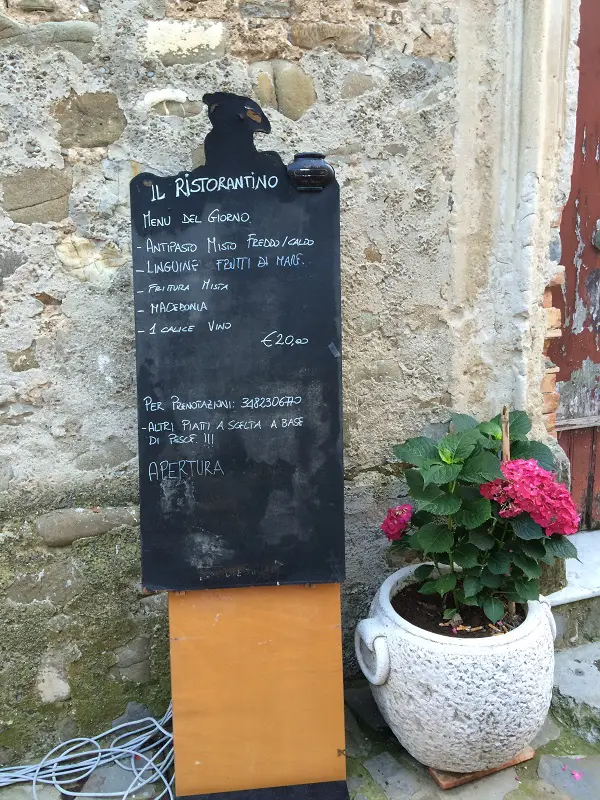 IL RISTORANTINO
MENÚ DEL GIORNO
- ANTIPASTO MISTO FREDDO/CALDO
- LINGUINE FRUTTI DI MARE
- FRITTURA MISTA
- MACEDONIA
- 1 CALICE VINO
€20,00
PER PRENOTAZIONI:
- ALTRI PIATTI A SCELTA A BASE
DI PESCE !!!
APERTURA